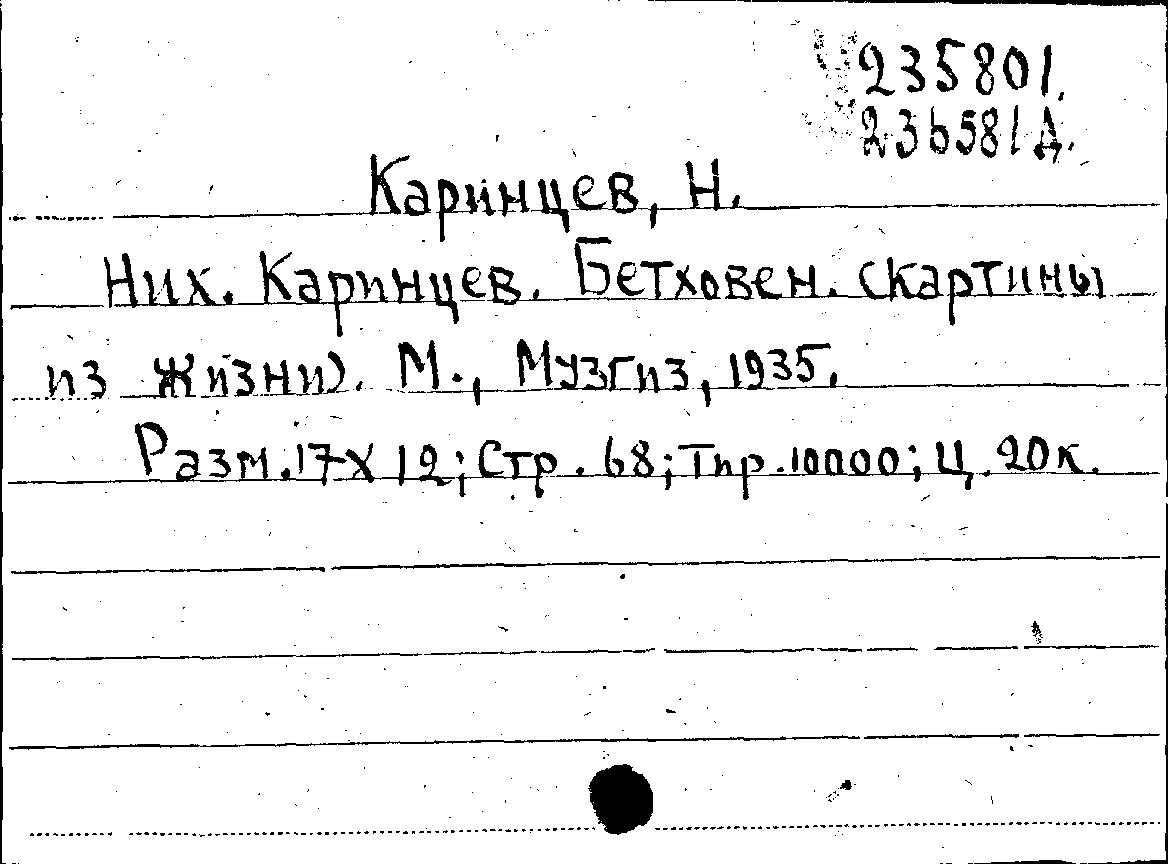 235801.
236581 Д.
Каринцев, Н.
Ник. Каринцев. Бетховен. (Картины
из жизни). М., Музгиз, 1935.
Разм. 17X12; Стр. 68; Тир. 10000; Ц. 20к.